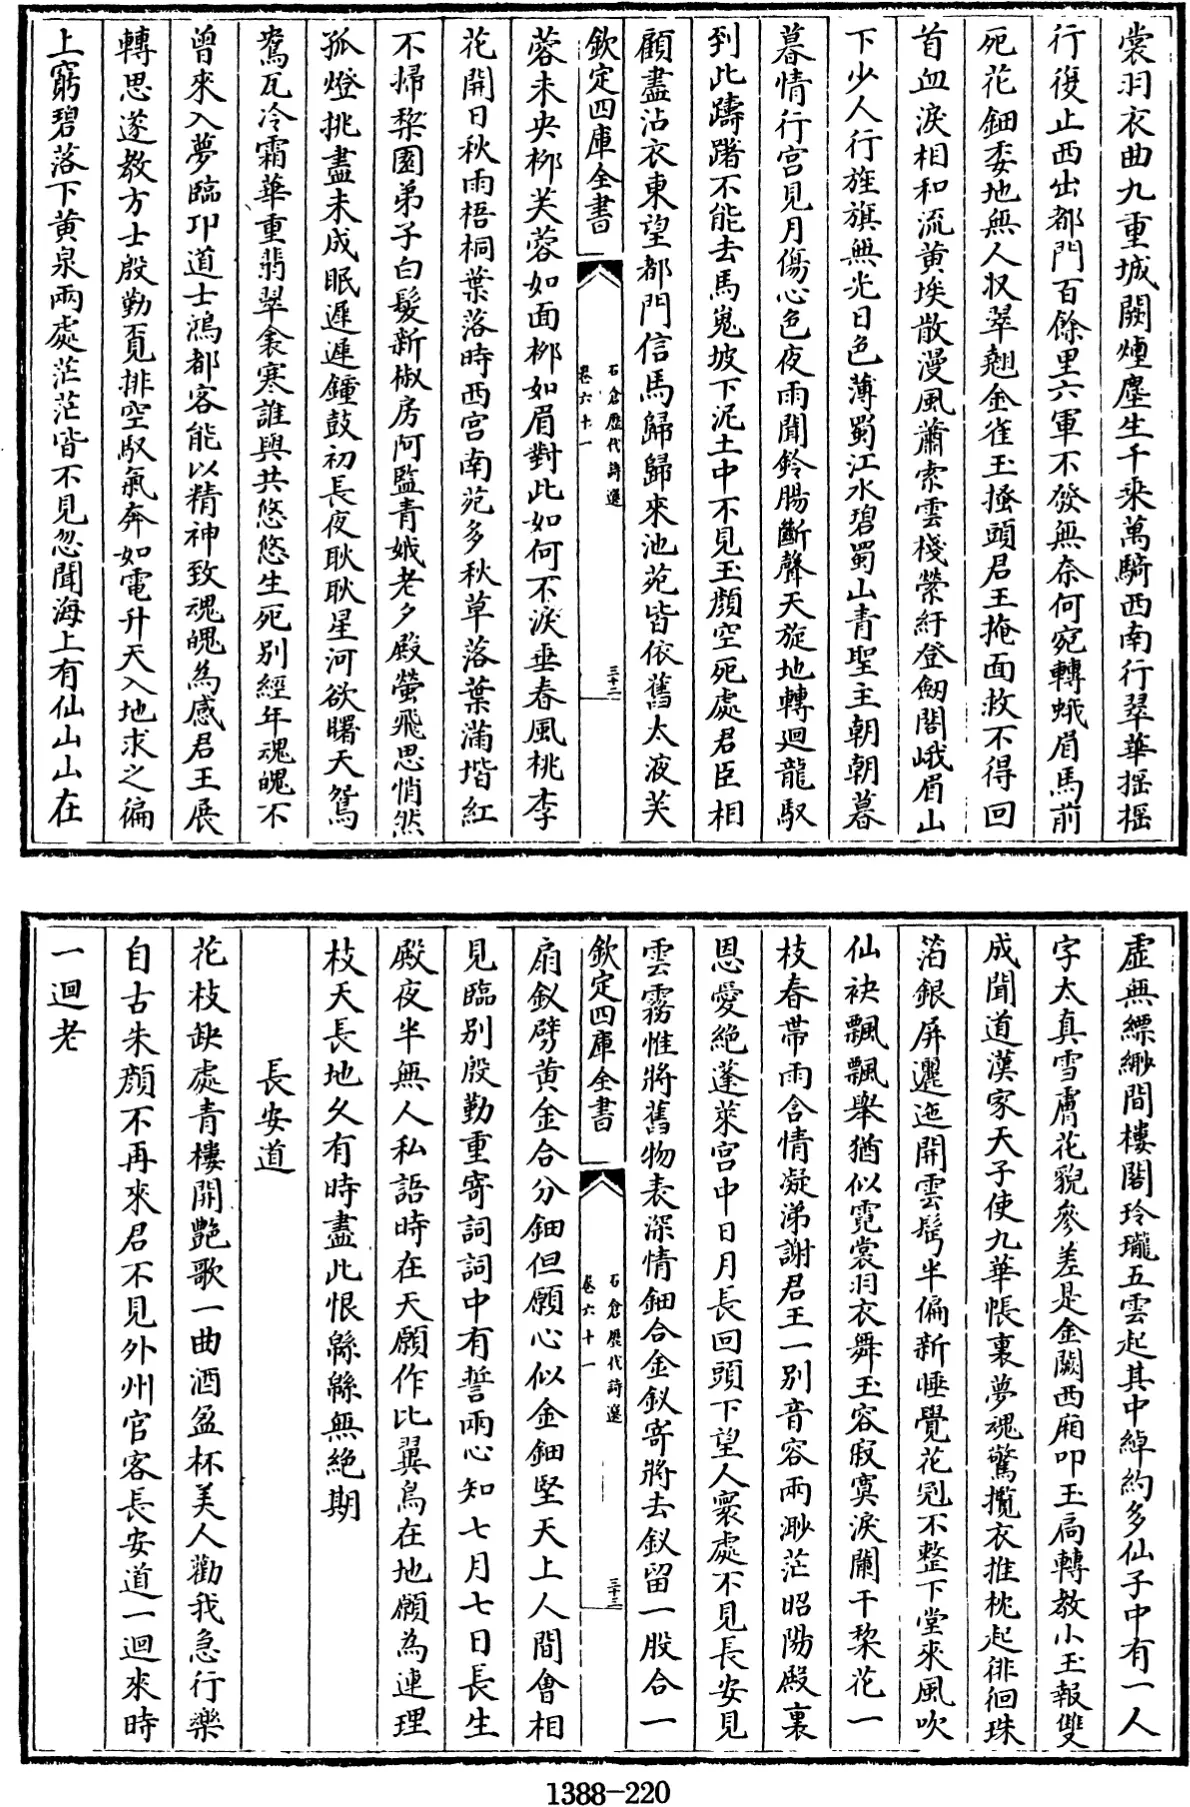 裳羽衣曲九重城闕煙塵生千乘萬騎西南行翠華揺揺
行復止西出都門百餘里六軍不發無奈何宛轉蛾眉馬前
死花鈿委地無人收翠翹金雀玉搔頭君王掩面救不得回
首血淚相和流黄埃散漫風蕭索雲棧縈紆登劒閣峨眉山
下少人行旌旗無光日色薄蜀江水碧蜀山青聖主朝朝暮
暮情行宫見月傷心色夜雨聞鈴腸斷聲天旋地轉迴龍馭
到此躊躇不能去馬嵬坡下泥土中不見玉顔空死處君臣相
顧盡沾衣東望都門信馬歸歸來池苑皆依舊太液芙
欽定四庫全書
石倉歷代詩選
卷六十一
三十二
蓉未央栁芙蓉如面栁如眉對此如何不淚垂春風桃李
花開日秋雨梧桐葉落時西宫南苑多秋草落葉滿堦紅
不掃棃園弟子白髮新椒房阿監青娥老夕殿螢飛思悄然
孤燈挑盡未成眠遲遲鐘鼓初長夜耿耿星河欲曙天鴛
鴦瓦冷霜華重翡翠衾寒誰與共悠悠生死别經年魂魄不
曾來入夢臨卭道士鴻都客能以精神致魂魄為感君王展
轉思遂教方士殷勤覔排空馭氣奔如電升天入地求之徧
上窮碧落下黄泉兩處茫茫皆不見忽聞海上有仙山山在
虚無縹緲間樓閣玲瓏五雲起其中綽約多仙子中有一人
字太真雪膚花貌參差是金闕西廂叩玉扃轉教小玉報雙
成聞道漢家天子使九華帳裏夢魂驚攬衣推枕起徘徊珠
箔銀屏邐迤開雲髩半偏新睡覺花冠不整下堂來風吹
仙袂飄飄舉猶似霓裳羽衣舞玉容寂寞淚闌干棃花一
枝春帶雨含情凝涕謝君王一别音容兩渺茫昭陽殿裏
恩愛絶蓬萊宫中日月長回頭下望人寰處不見長安見
雲霧惟將舊物表深情鈿合金釵寄將去釵留一股合一
欽定四庫全書
石倉歷代詩選
卷六十一
三十三
扇釵劈黄金合分鈿但願心似金鈿堅天上人間會相
見臨别殷勤重寄詞詞中有誓兩心知七月七日長生
殿夜半無人私語時在天願作比翼鳥在地願為連理
枝天長地久有時盡此恨緜緜無絶期
長安道
花枝缺處青樓開艶歌一曲酒盈杯美人勸我急行樂
自古朱顔不再來君不見外州官客長安道一迴來時
一迴老
1388-220